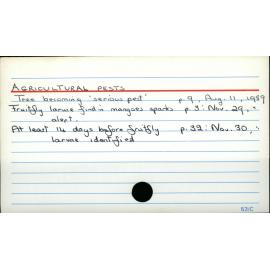 AGRICULTURAL PESTS
Tree becoming 'serious pest' p.9, Aug. 11, 1989
Fruitfly larvae find in mangoes sparks p.3: Nov. 29, "
alert.
At least 14 days before fruitfly p.32: Nov. 30, "
larvae identified
53/C